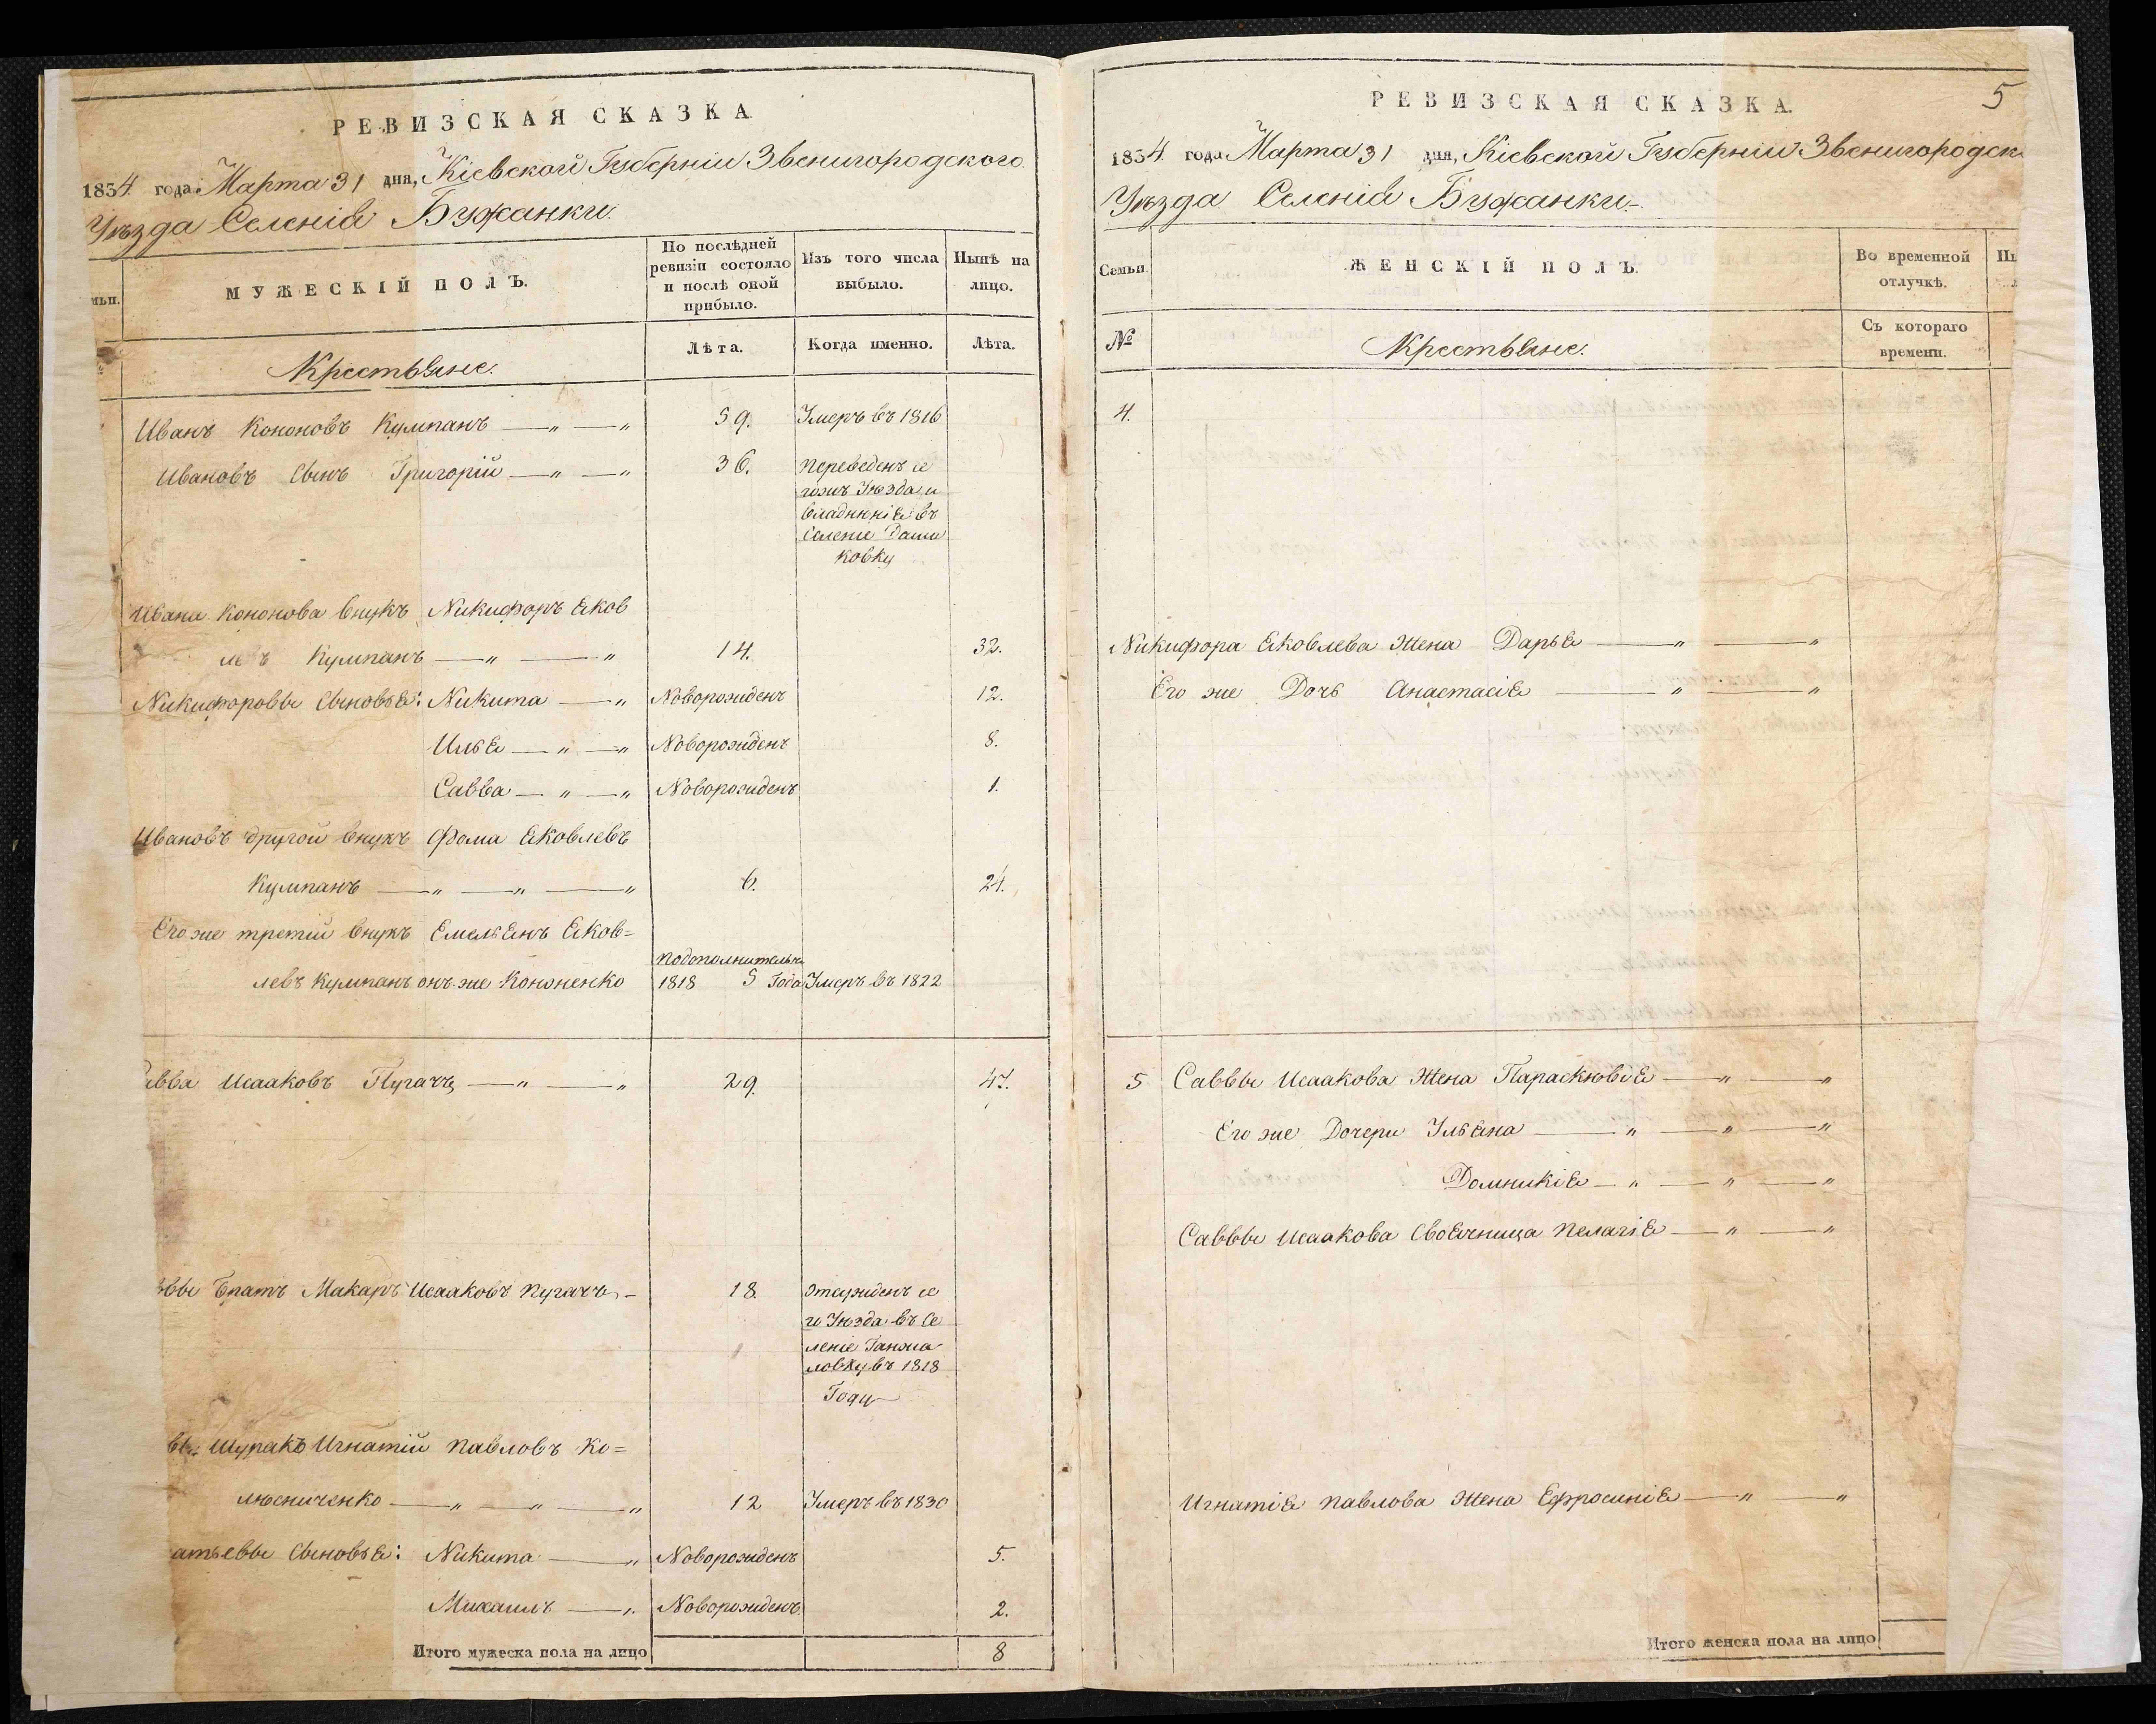 РЕВИЗСКАЯ СКАЗКА
1834 года Марта 31 дня, Кіевской Губерніи Звенигородского
Уѣзда Селенія Бужанки.
МУЖЕСКІЙ ПОЛЪ.
По послѣдней
ревизіи состояло
и послѣ оной
прибыло.
Изъ того числа
выбыло.
Нынѣ на
лицо.
Крестьяне.
Лѣта.
Когда именно.
Лѣта.
Иванъ Кононовъ Кумпанъ — „ — „ 59. Умеръ въ 1816
Ивановъ Сынъ Григорій — „ — „ 36. Переведенъ се
гожъ Уѣзда и
владѣнія въ
Селеніе Даши
ковку
Ивана Кононова внукъ Никифоръ Яков
левъ Кумпанъ — „ — „ 14. 32.
Никифоровы Сыновья: Никита — „ Новорожденъ 12.
Илья — „ — „ Новорожденъ 8.
Савва — „ — „ Новорожденъ 1.
Ивановъ другой внукъ Фома Яковлевъ
Кумпанъ — „ — „ — „ 6. 24.
Его же третій внукъ Емельянъ Яков=
левъ Кумпанъ онъ же Кононенко
подополнительн
1818 5 года Умеръ въ 1822
авва Исааковъ Пугачъ — „ — „ 29. 47.
вы Братъ Макаръ Исааковъ Пугачъ — 18. Отсужденъ се
го Уѣзда въ Се
леніе
ловку въ 1818
Году
вы Шуракъ Игнатій Павловъ Ко=
лѣсниченко — „ — „ — „ 12 Умеръ въ 1830
атьевы Сыновья: Никита — „ Новорожденъ 5.
Михаилъ — „ Новорожденъ 2.
Итого мужеска пола на лицо 8
РЕВИЗСКАЯ СКАЗКА. 5
1834 года Марта 31 дня, Кіевской Губерніи Звенигородск
Уѣзда Селенія Бужанки.
Семьи.
ЖЕНСКІЙ ПОЛЪ.
Во временной
отлучкѣ.
№
Крестьяне.
Съ котораго
времени.
4.
Никифора Яковлева Жена Дарья — „ — „
Его же Дочь Анастасія — „ — „
5 Саввы Исаакова Жена Параскѣвія — „ — „
Его же Дочери Ульяна — „ — „ — „
Домникія — „ — „ — „
Саввы Исаакова Своячница Пелагія — „ — „
Игнатія Павлова Жена Ефросинія — „ — „
Итого женска пола на лицо